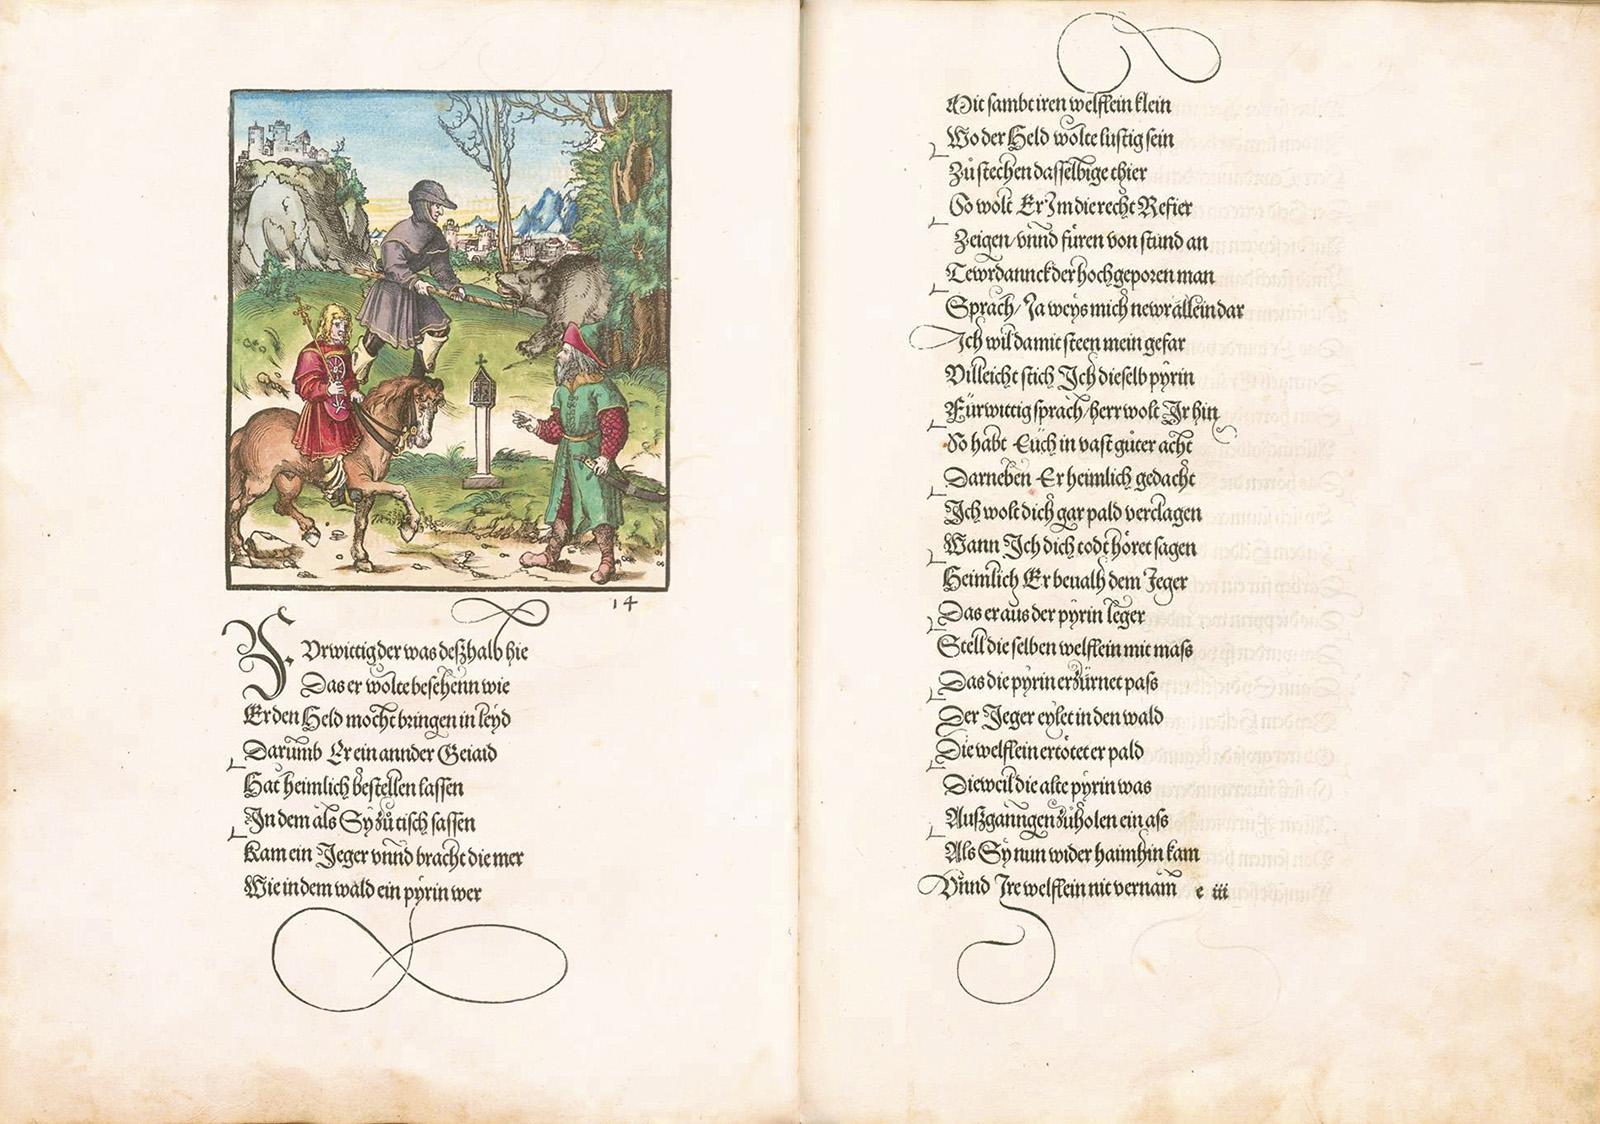 14
FUrwittig der was deßhalb hie
Das er wolte besehenn wie
Er den Held mocht bringen in leyd
Darumb Er ein annder Geiaid
Hat heimlich bestellen lassen
In dem als Sy zů tisch sassen
Kam ein Jeger vnnd bracht die mer
Wie in dem wald ein pyrin wer
Mit sambt iren welfflein klein
Wo der Held wolte lustig sein
Zů stechen dasselbige thier
So wolt Er Im die recht Refier
Zeigen / vnnd füren von stund an
Tewrdannck der hochgeporen man
Sprach / Ja weys mich newr allein dar
Ich wil damit steen mein gefar
Villeicht stich Ich dieselb pyrin
Fürwittig sprach / herr wolt Ir hin
So habt Eüch in vast gůter acht
Darneben Er heimlich gedacht
Ich wolt dich gar pald verclagen
Wann Ich dich todt höret sagen
Heimlich Er beualh dem Jeger
Das er aus der pyrin leger
Stell die selben welfflein mit mass
Das die pyrin erzürnet pass
Der Jeger eylet in den wald
Die welfflein ertötet er pald
Dieweil die alte pyrin was
Außganngen zů holen ein ass
Als Sy nun wider haimhin kam
Vnnd Ire welfflein nit vernam e iii